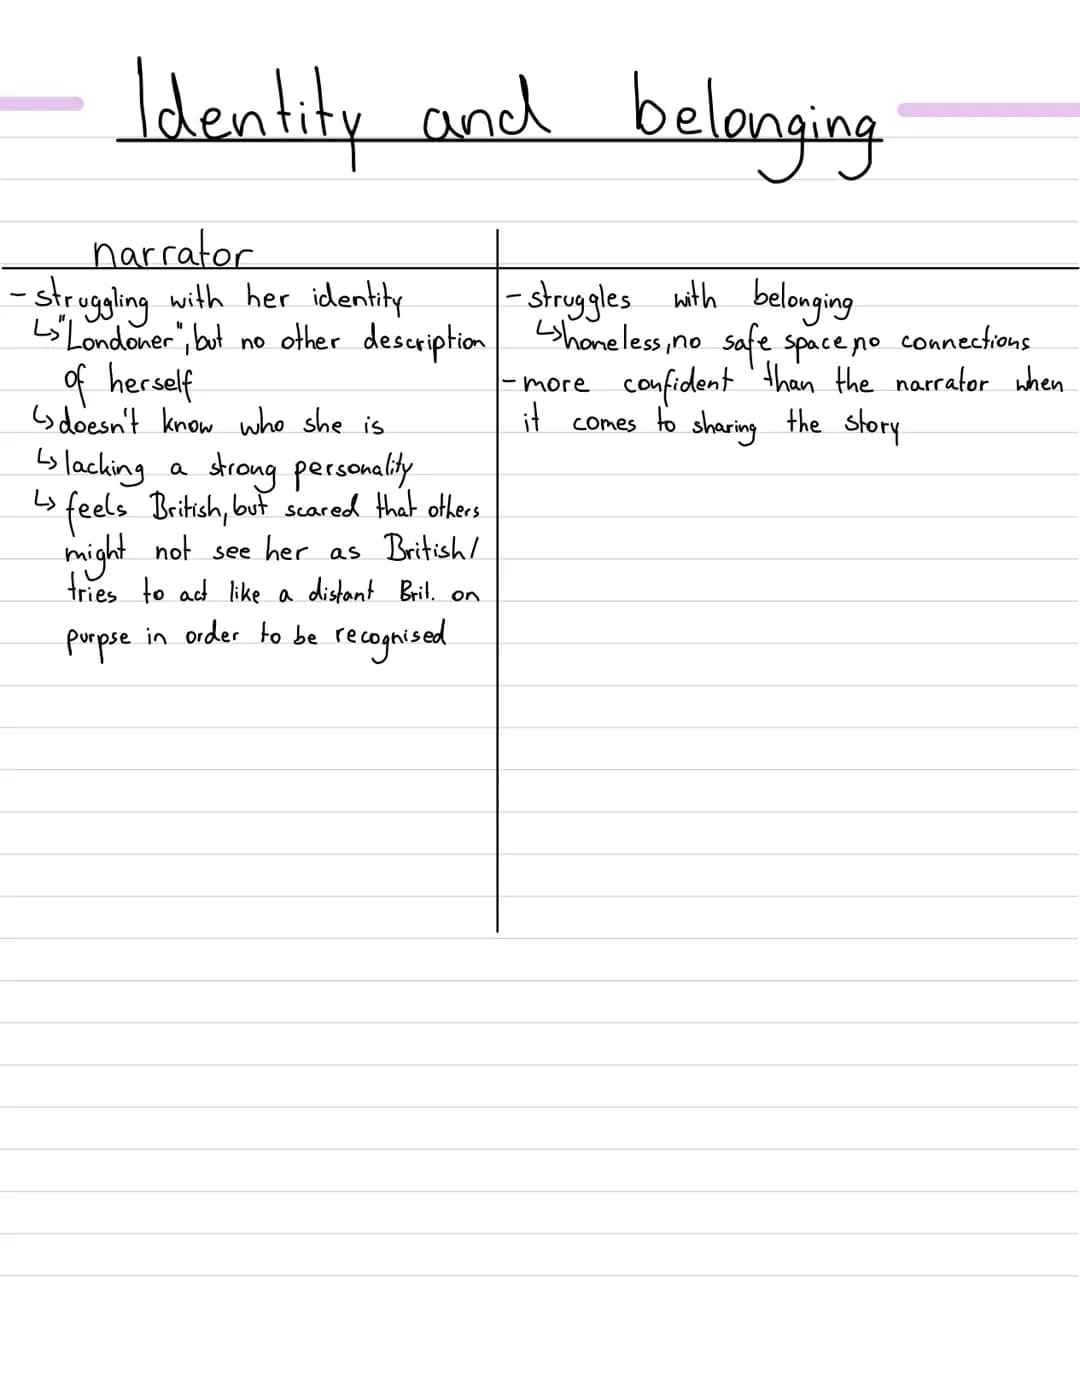 Identity and belonging
narrator
- struggling with her identity
↳ "Londoner", but no other description
of herself
↳ doesn't know who she is
↳ lacking a strong personality
↳ feels British, but scared that others
might not see her as British/
tries to act like a distant Brit. on
purpse in order to be recognised
- struggles with belonging
↳ homeless, no safe space, no connections
- more confident than the narrator when
it comes to sharing the story